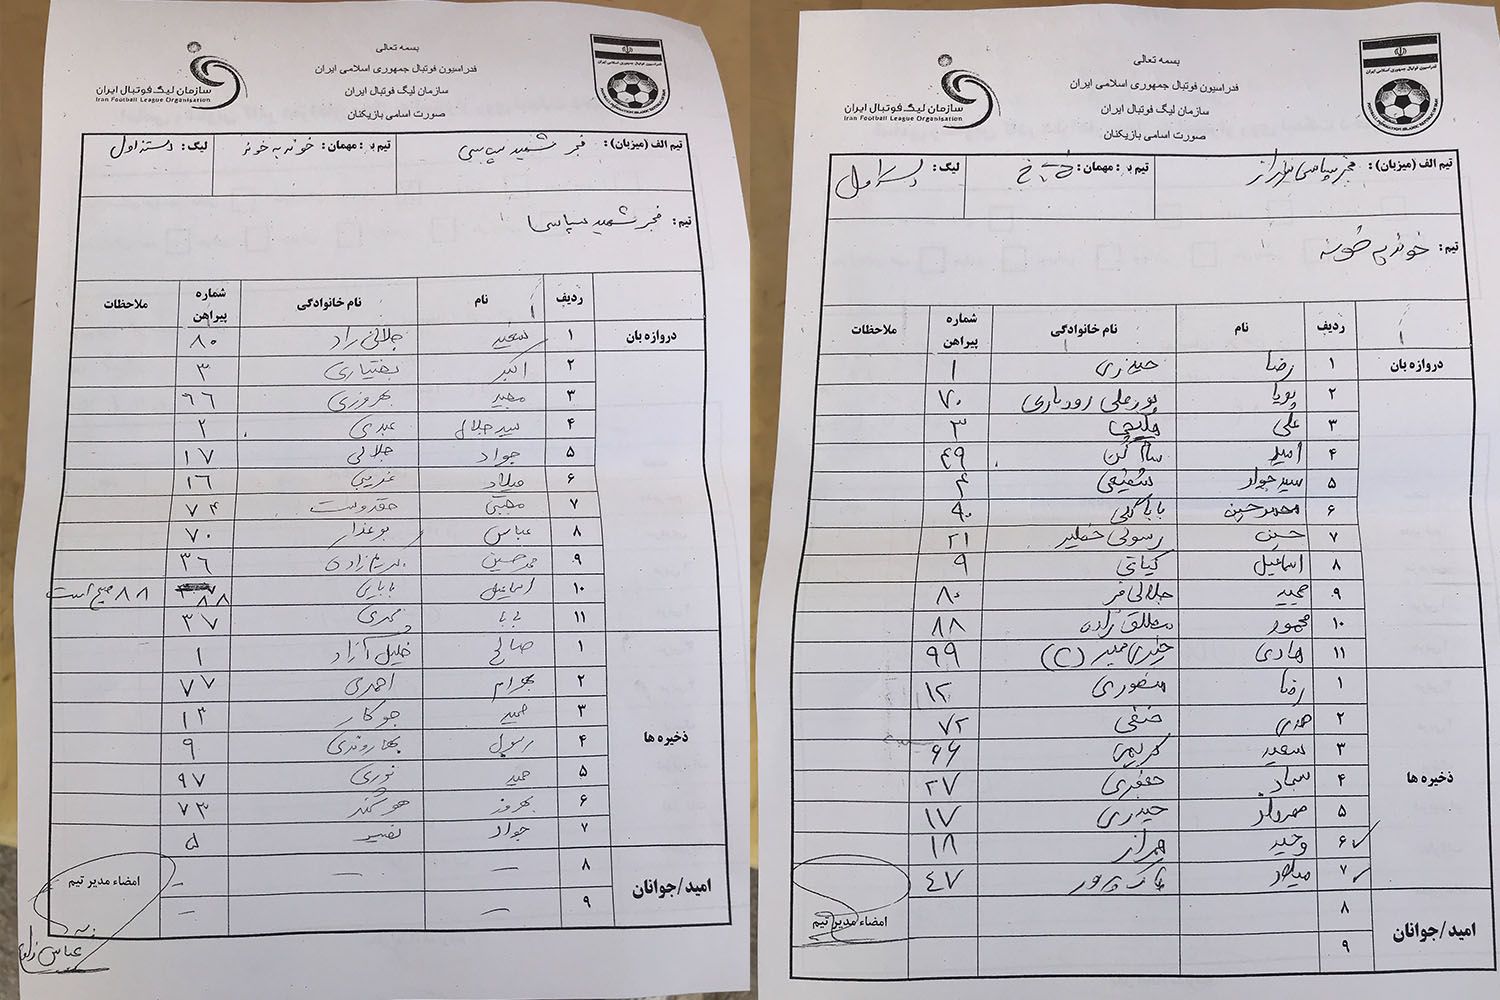 بسمه تعالی
فدراسیون فوتبال جمهوری اسلامی ایران
سازمان لیگ فوتبال ایران
صورت اسامی بازیکنان
سازمان لیگ فوتبال ایران
Iran Football League Organisation
تیم الف (میزبان): فجر شهید سپاسی تیم ب : مهمان: خونه به خونه لیگ: دسته اول
تیم: فجر شهید سپاسی
ردیف نام نام خانوادگی شماره پیراهن ملاحظات
دروازه بان ۱ سعید جلالی راد ۸۰
۲ اکبر بختیاری ۳
۳ مجید بهروزی ۶۶
۴ سید جلال عبدی ۲
۵ جواد جلالی ۱۷
۶ میلاد غریبی ۱۶
۷ مجتبی حقدوست ۷۴
۸ عباس بوعذار ۷۰
۹ محمدحسین ۳۶
۱۰ اسماعیل بابایی ۸۸ ۸۸ صحیح است
۱۱ ۳۷
ذخیره ها
۱ صالح خلیل آزاد ۱
۲ بهرام احمدی ۷۷
۳ حمید جوکار ۱۳
۴ رسول بهاروندی ۹
۵ حمید نوری ۹۷
۶ بهروز ۷۳
۷ جواد نصیر ۵
امید/جوانان
۸ — — —
۹ — —
امضاء مدیر تیم
بسمه تعالی
فدراسیون فوتبال جمهوری اسلامی ایران
سازمان لیگ فوتبال ایران
صورت اسامی بازیکنان
سازمان لیگ فوتبال ایران
Iran Football League Organisation
تیم الف (میزبان): فجر سپاسی شیراز تیم ب : مهمان: لیگ: دسته اول
تیم: خونه به خونه
ردیف نام نام خانوادگی شماره پیراهن ملاحظات
دروازه بان ۱ رضا حیدری ۱
۲ پویا پورعلی رودباری ۷۰
۳ علی ۳
۴ امید ۴۹
۵ سید جواد شفیعی ۴
۶ محمدحسین باباگلی ۹۰
۷ حسین رسولی خطیر ۲۱
۸ اسماعیل کیانی ۹
۹ مجید جلالی فر ۸۰
۱۰ محمود مطلق زاده ۸۸
۱۱ هادی (C) ۹۹
ذخیره ها
۱ رضا منصوری ۱۲
۲ مهدی حنفی ۷۲
۳ سعید کریمی ۶۶
۴ سجاد جعفری ۲۷
۵ مهرداد حیدری ۱۷
۶ وحید ۱۸
۷ میلاد پاک پرور ۴۷
امید/جوانان
۸
۹
امضاء مدیر تیم